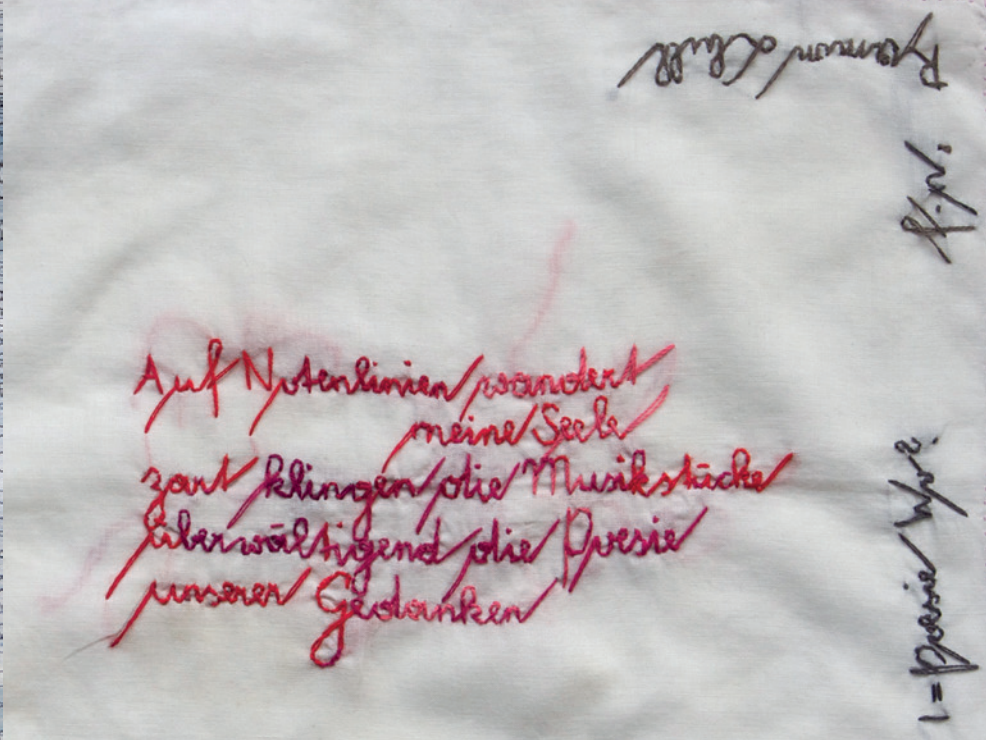 Auf Notenlinien wandert
meine Seele
zart klingen die Musikstücke
überwältigend die Poesie
unserer Gedanken
Poesie